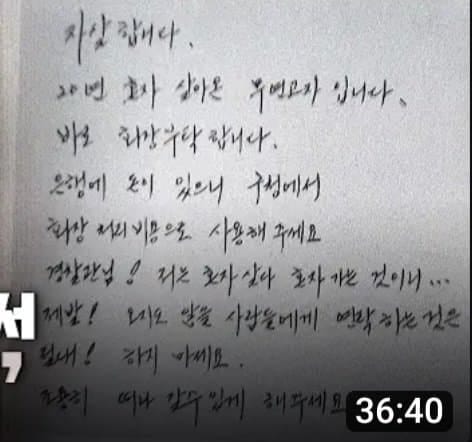 자살 합니다.
20년 혼자 살아온 무연고자 입니다.
바로 화장부탁 합니다.
은행에 돈이 있으니 구청에서
화장 처리비용으로 사용해 주세요
경찰관님! 저는 혼자 살다 혼자 가는 것이니...
제발! 오지도 않을 사람들에게 연락 하는 것은
절대! 하지 마세요.
조용히 떠나 갈수 있게 해주세요
서
,
36:40